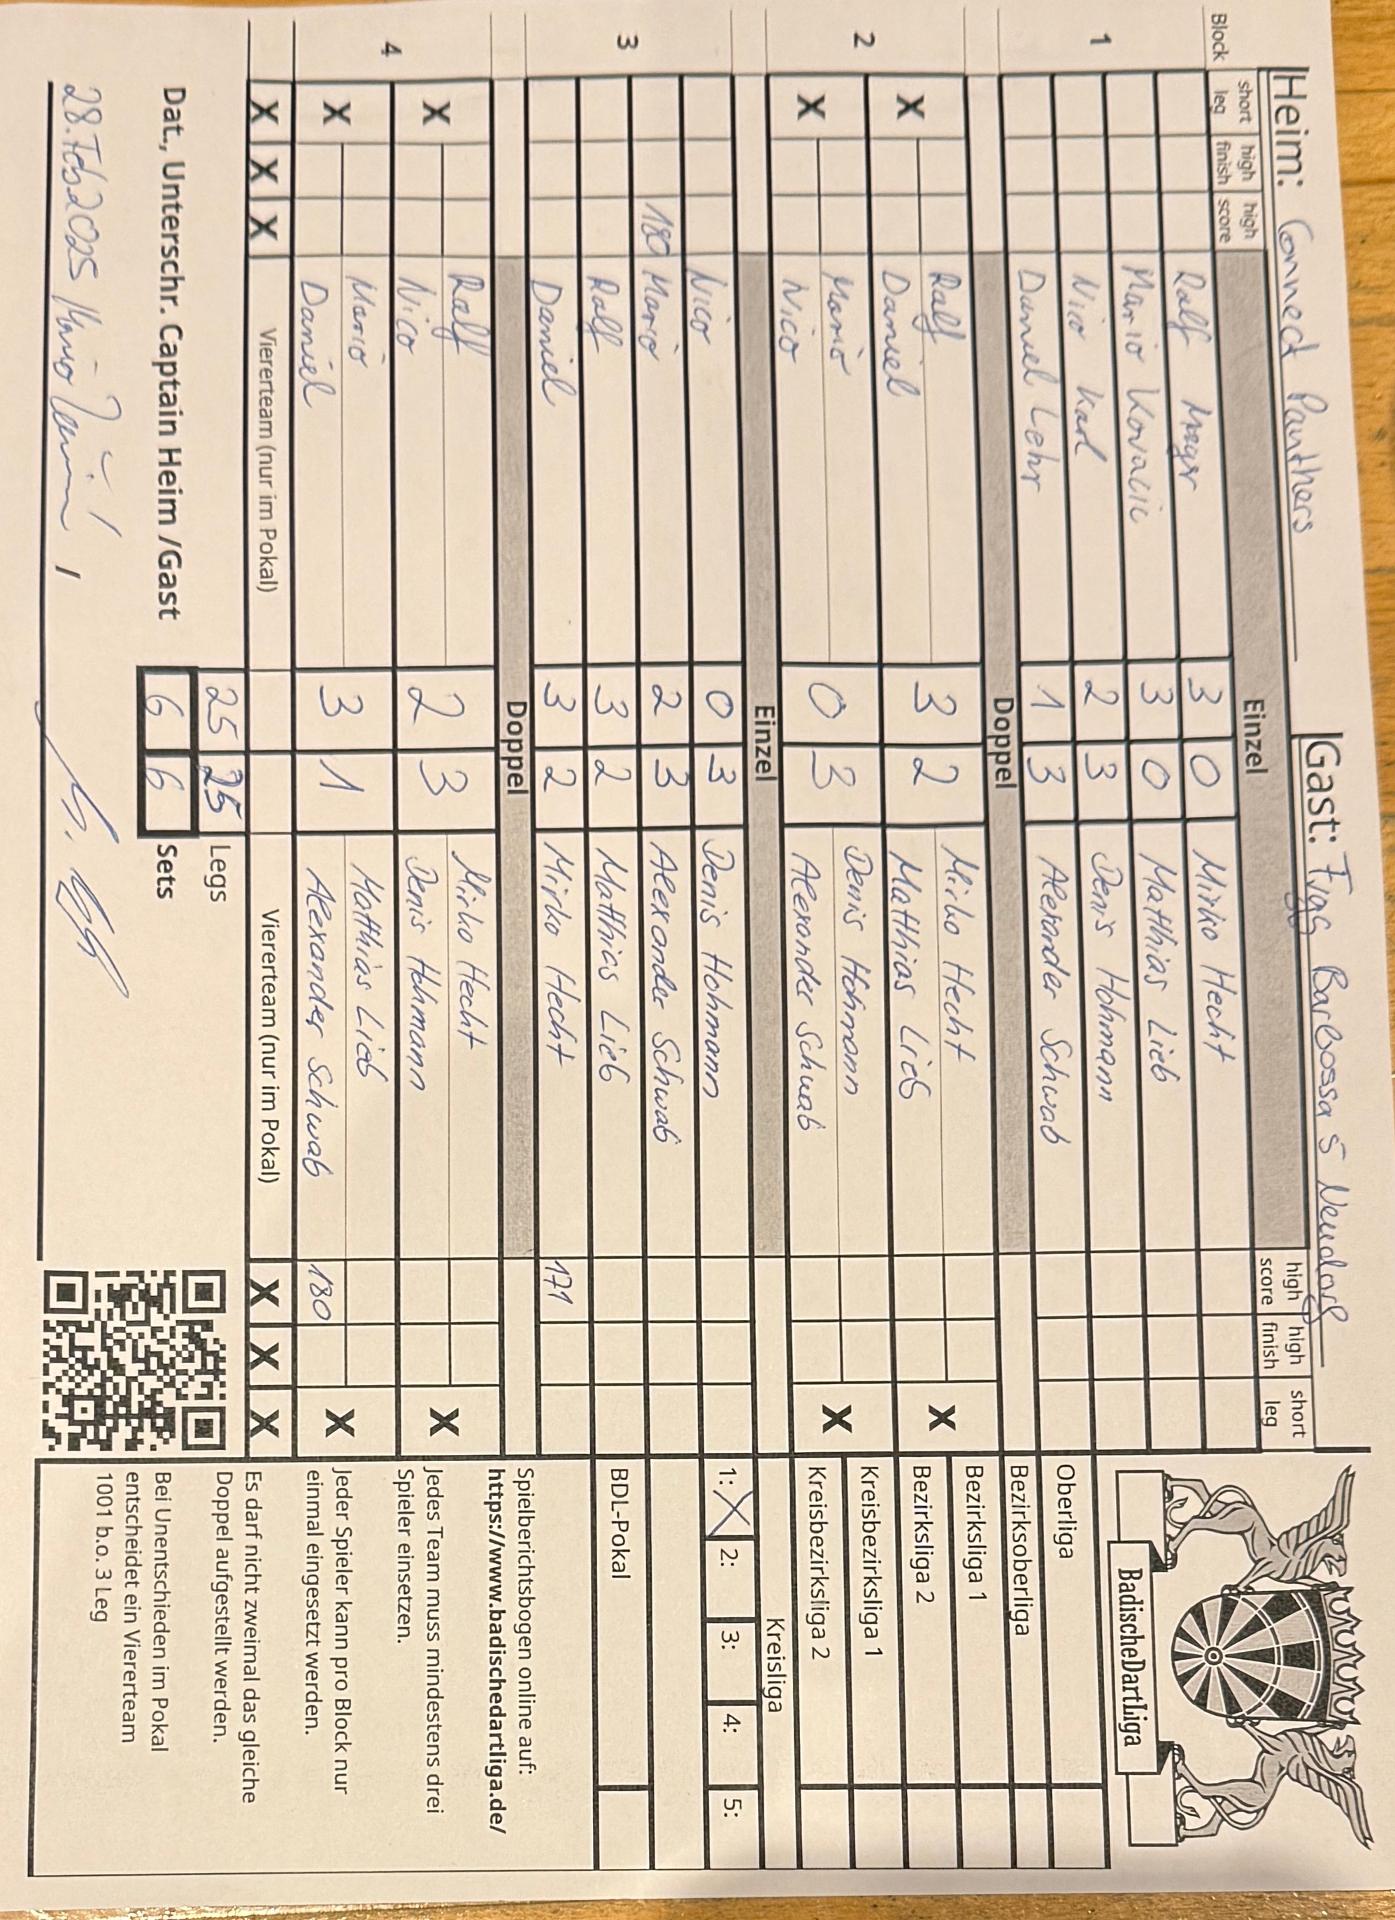 Heim: Conned Panthers Gast: Figg Barbossa's Neudorf
Block short leg high finish high score Einzel high score high finish short leg
1
Ralf Mayr 3 0 Mirko Hecht
Mario Kovacic 3 0 Matthias Lieb
Nico Karl 2 3 Denis Hohmann
Daniel Lehr 1 3 Alexander Schwab
Doppel
2
X Ralf 3 2 Mirko Hecht X
Daniel Matthias Lieb
X Mario 0 3 Denis Hohmann X
Nico Alexander Schwab
Einzel
3
Nico 0 3 Denis Hohmann
180 Mario 2 3 Alexander Schwab
Ralf 3 2 Matthias Lieb
Daniel 3 2 Mirko Hecht 171
Doppel
4
X Ralf 2 3 Mirko Hecht X
Nico Denis Hohmann
X Mario 3 1 Matthias Lieb X
Daniel Alexander Schwab 180
X X X Viererteam (nur im Pokal) Viererteam (nur im Pokal) X X X
25 25 Legs
Dat., Unterschr. Captain Heim /Gast 6 6 Sets
28. Feb 2025
BadischeDartLiga
Oberliga
Bezirksoberliga
Bezirksliga 1
Bezirksliga 2
Kreisbezirksliga 1
Kreisbezirksliga 2
Kreisliga
1: X 2: 3: 4: 5:
BDL-Pokal
Spielberichtsbogen online auf:
https://www.badischedartliga.de/
Jedes Team muss mindestens drei
Spieler einsetzen.
Jeder Spieler kann pro Block nur
einmal eingesetzt werden.
Es darf nicht zweimal das gleiche
Doppel aufgestellt werden.
Bei Unentschieden im Pokal
entscheidet ein Viererteam
1001 b.o. 3 Leg